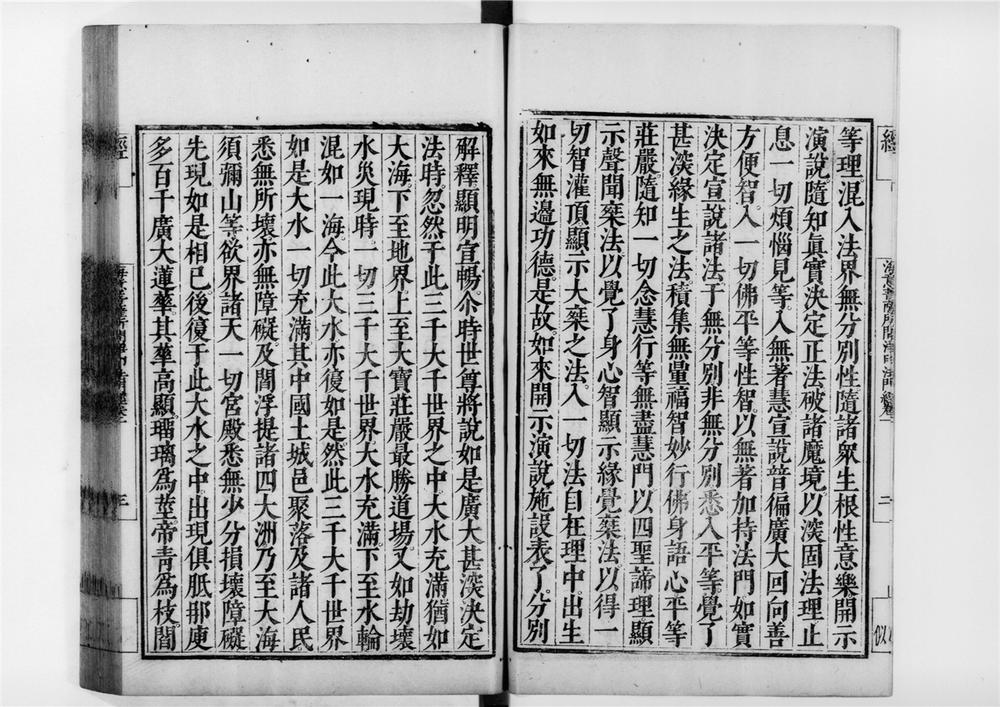 等理混入法界無分別性隨諸眾生根性意樂開示
演說隨知眞實決定正法破諸魔境以深固法理止
息一切煩惱見等入無著慧宣說普徧廣大回向善
方便智入一切佛平等性智以無著加持法門如實
決定宣說諸法于無分別非無分別悉入平等覺了
甚深緣生之法積集無量福智妙行佛身語心平等
莊嚴隨知一切念慧行等無盡慧門以四聖諦理顯
示聲聞椉法以覺了身心智顯示緣覺椉法以得一
切智灌頂顯示大椉之法入一切法自在理中出生
如來無邊功德是故如來開示演說施設表了分別
解釋顯明宣暢尒時世尊將說如是廣大甚深決定
法時忽然于此三千大千世界之中大水充滿猶如
大海下至地界上至大寶莊嚴最勝道場又如劫壞
水災現時一切三千大千世界大水充滿下至水輪
混如一海今此大水亦復如是然此三千大千世界
如是大水一切充滿其中國土城邑聚落及諸人民
悉無所壞亦無障礙及閻浮提諸四大洲乃至大海
須彌山等欲界諸天一切宮殿悉無少分損壞障礙
先現如是相已後復于此大水之中出現俱胝那庾
多百千廣大蓮華其華高顯瑠璃爲莖帝青爲枝閻